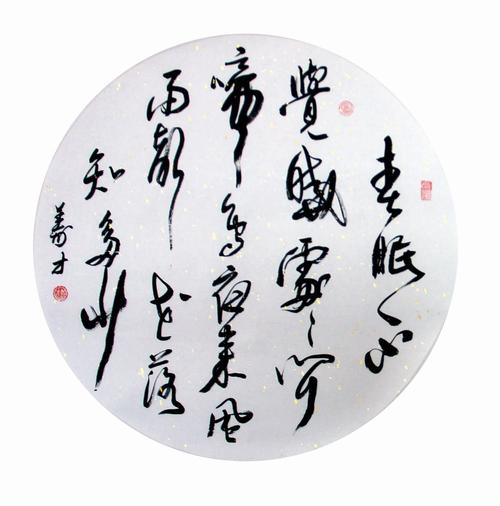 春眠不
覺曉處々聞
啼鳥夜来風
雨聲花落
知多少